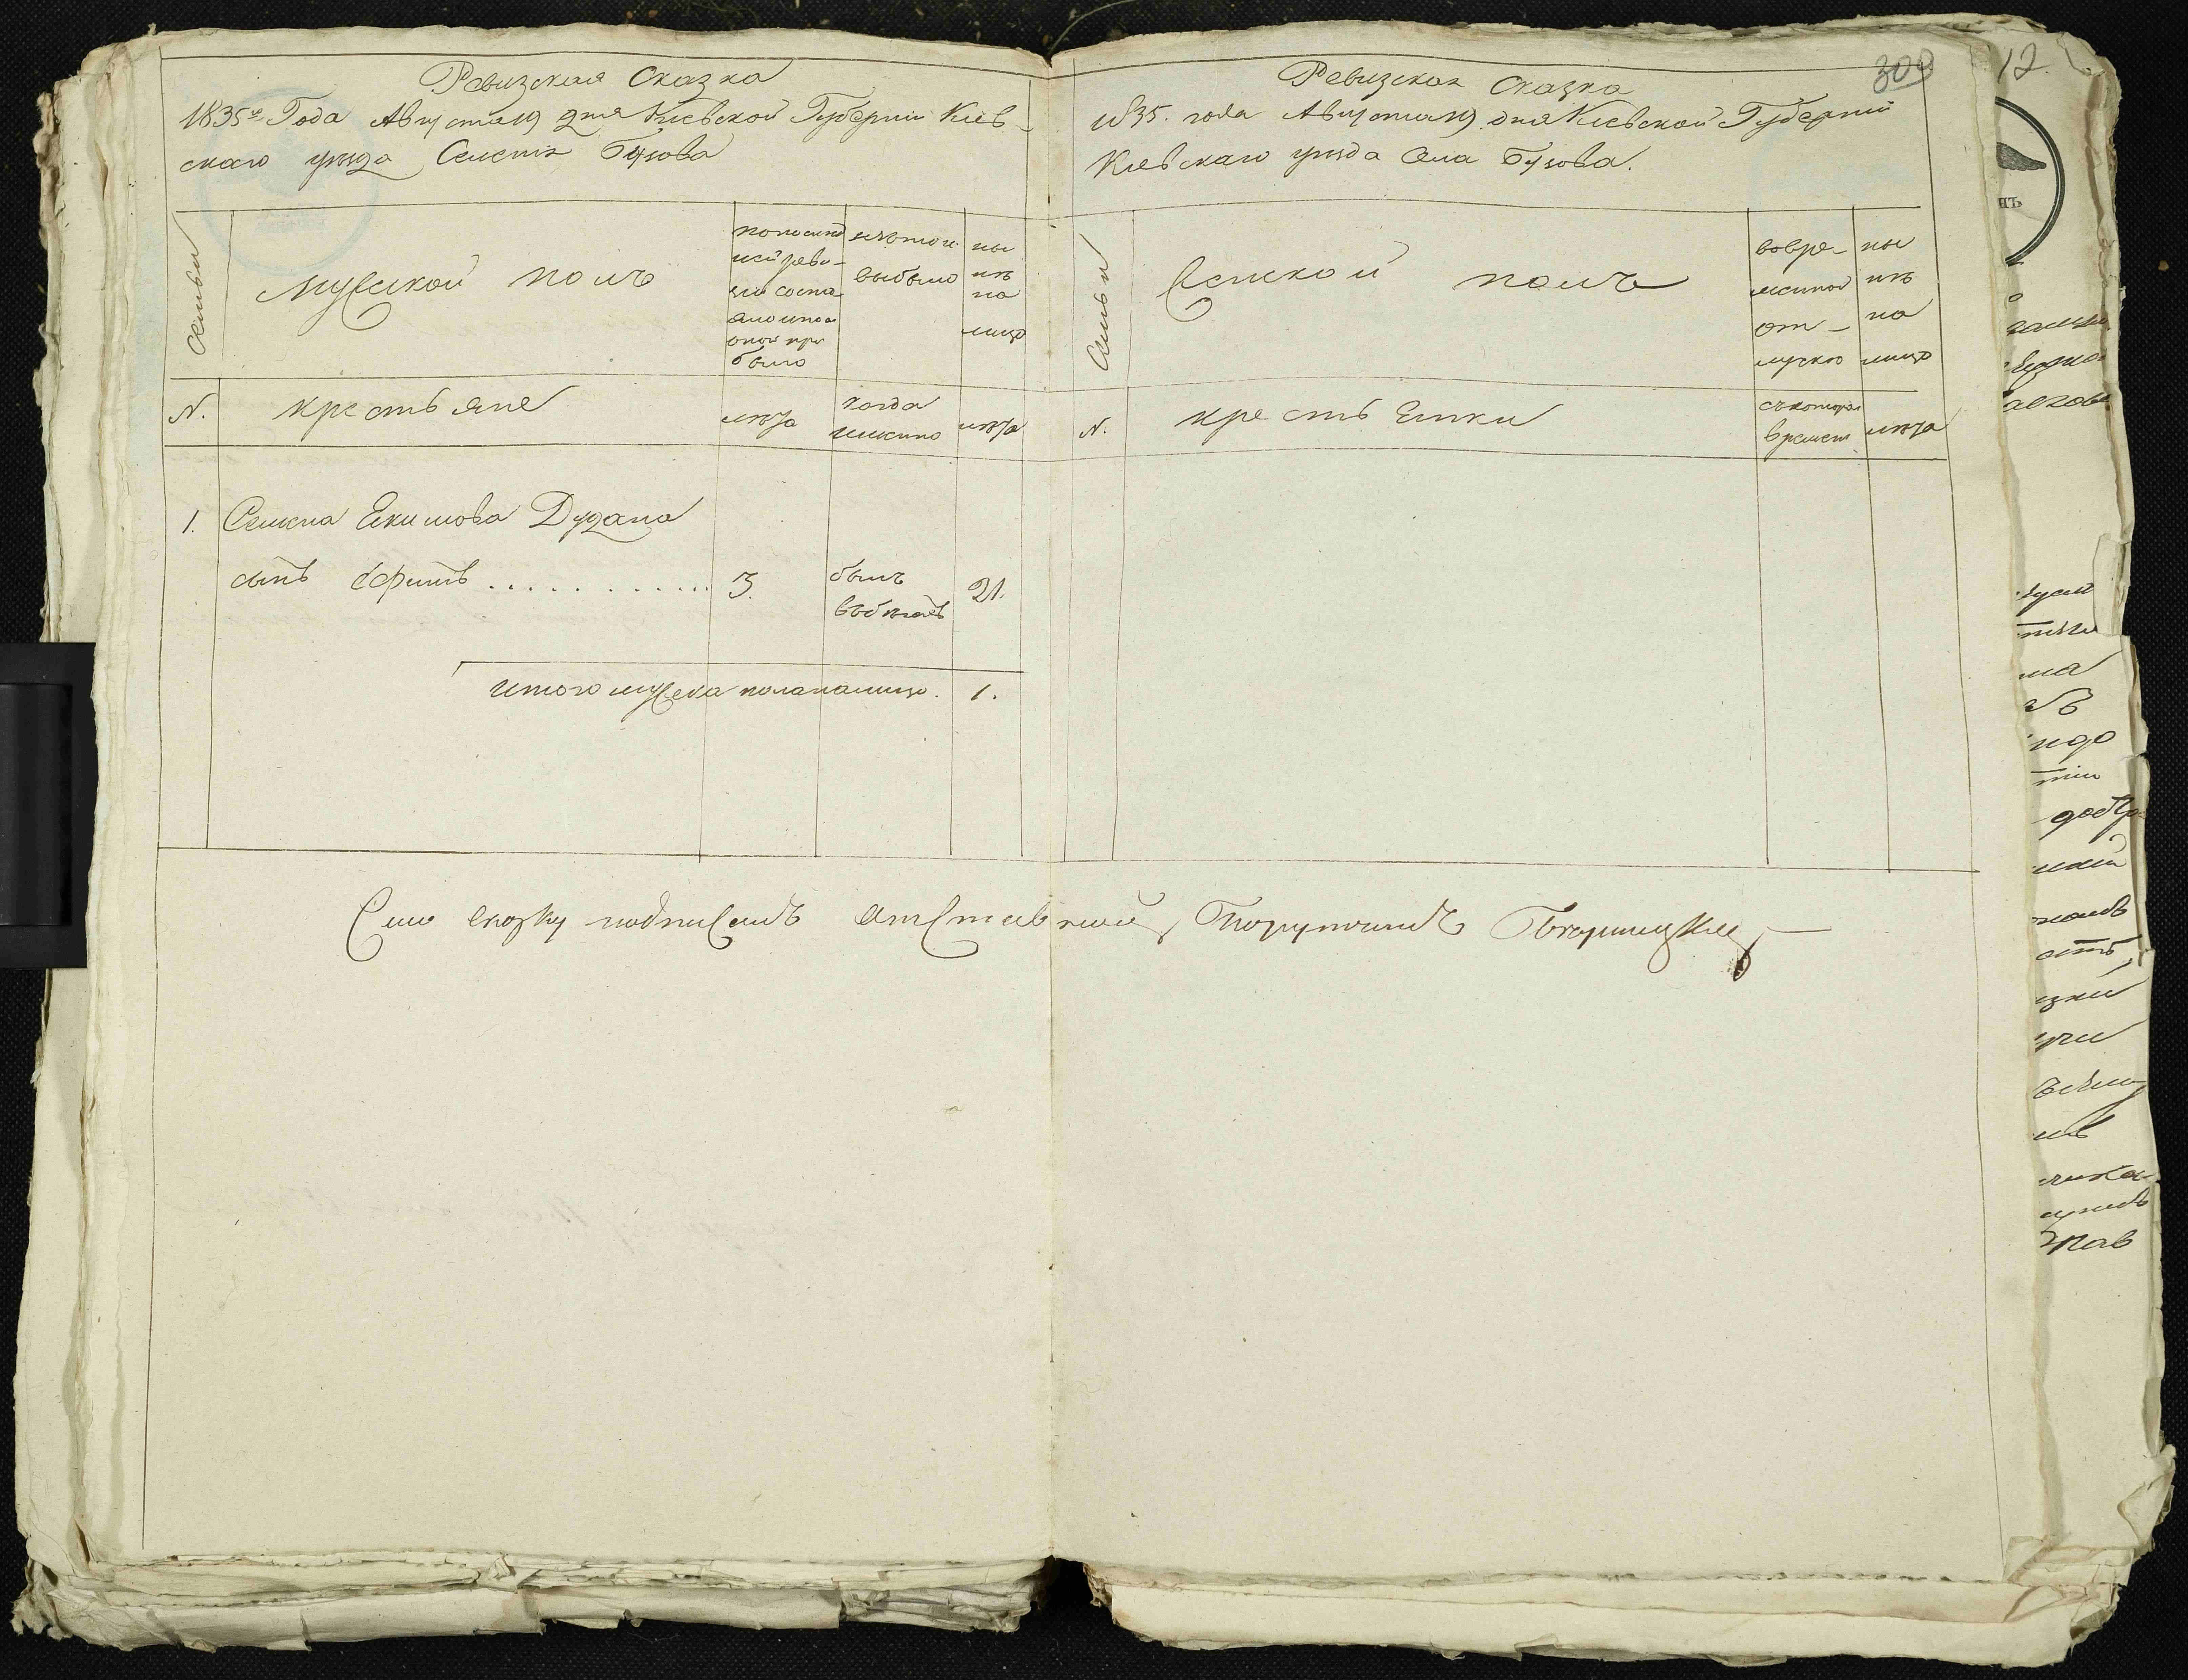 Ревизская Сказка
1835го Года Августа 19 дня Киевской Губернии Киев-
скаго уезда Селенія Бузова
Семьи
Мужской полъ
попослед
ней реви-
зіи состо
яло и по
оной при
было
изтого
выбыло
ны
нѣ
на
лицо
N.
крестьяне
лѣта
когда
имянно
лѣта
1. Семена Екимова Дудана
сынъ Ефимъ 3. былъ 21.
вбѣгахъ
Итого мужеска пола налицо. 1.
309
Ревизская Сказка
1835. года Августа 19 дня Киевской Губерніи
Киевскаго уезда Села Бузова.
Семьи
Женской полъ
вовре-
менной
от-
лучке
ны
нѣ
на
лицо
N.
крестьянки
скоторого
времени
лѣта
Сию сказку подписалъ отставной Порутчикъ
12.